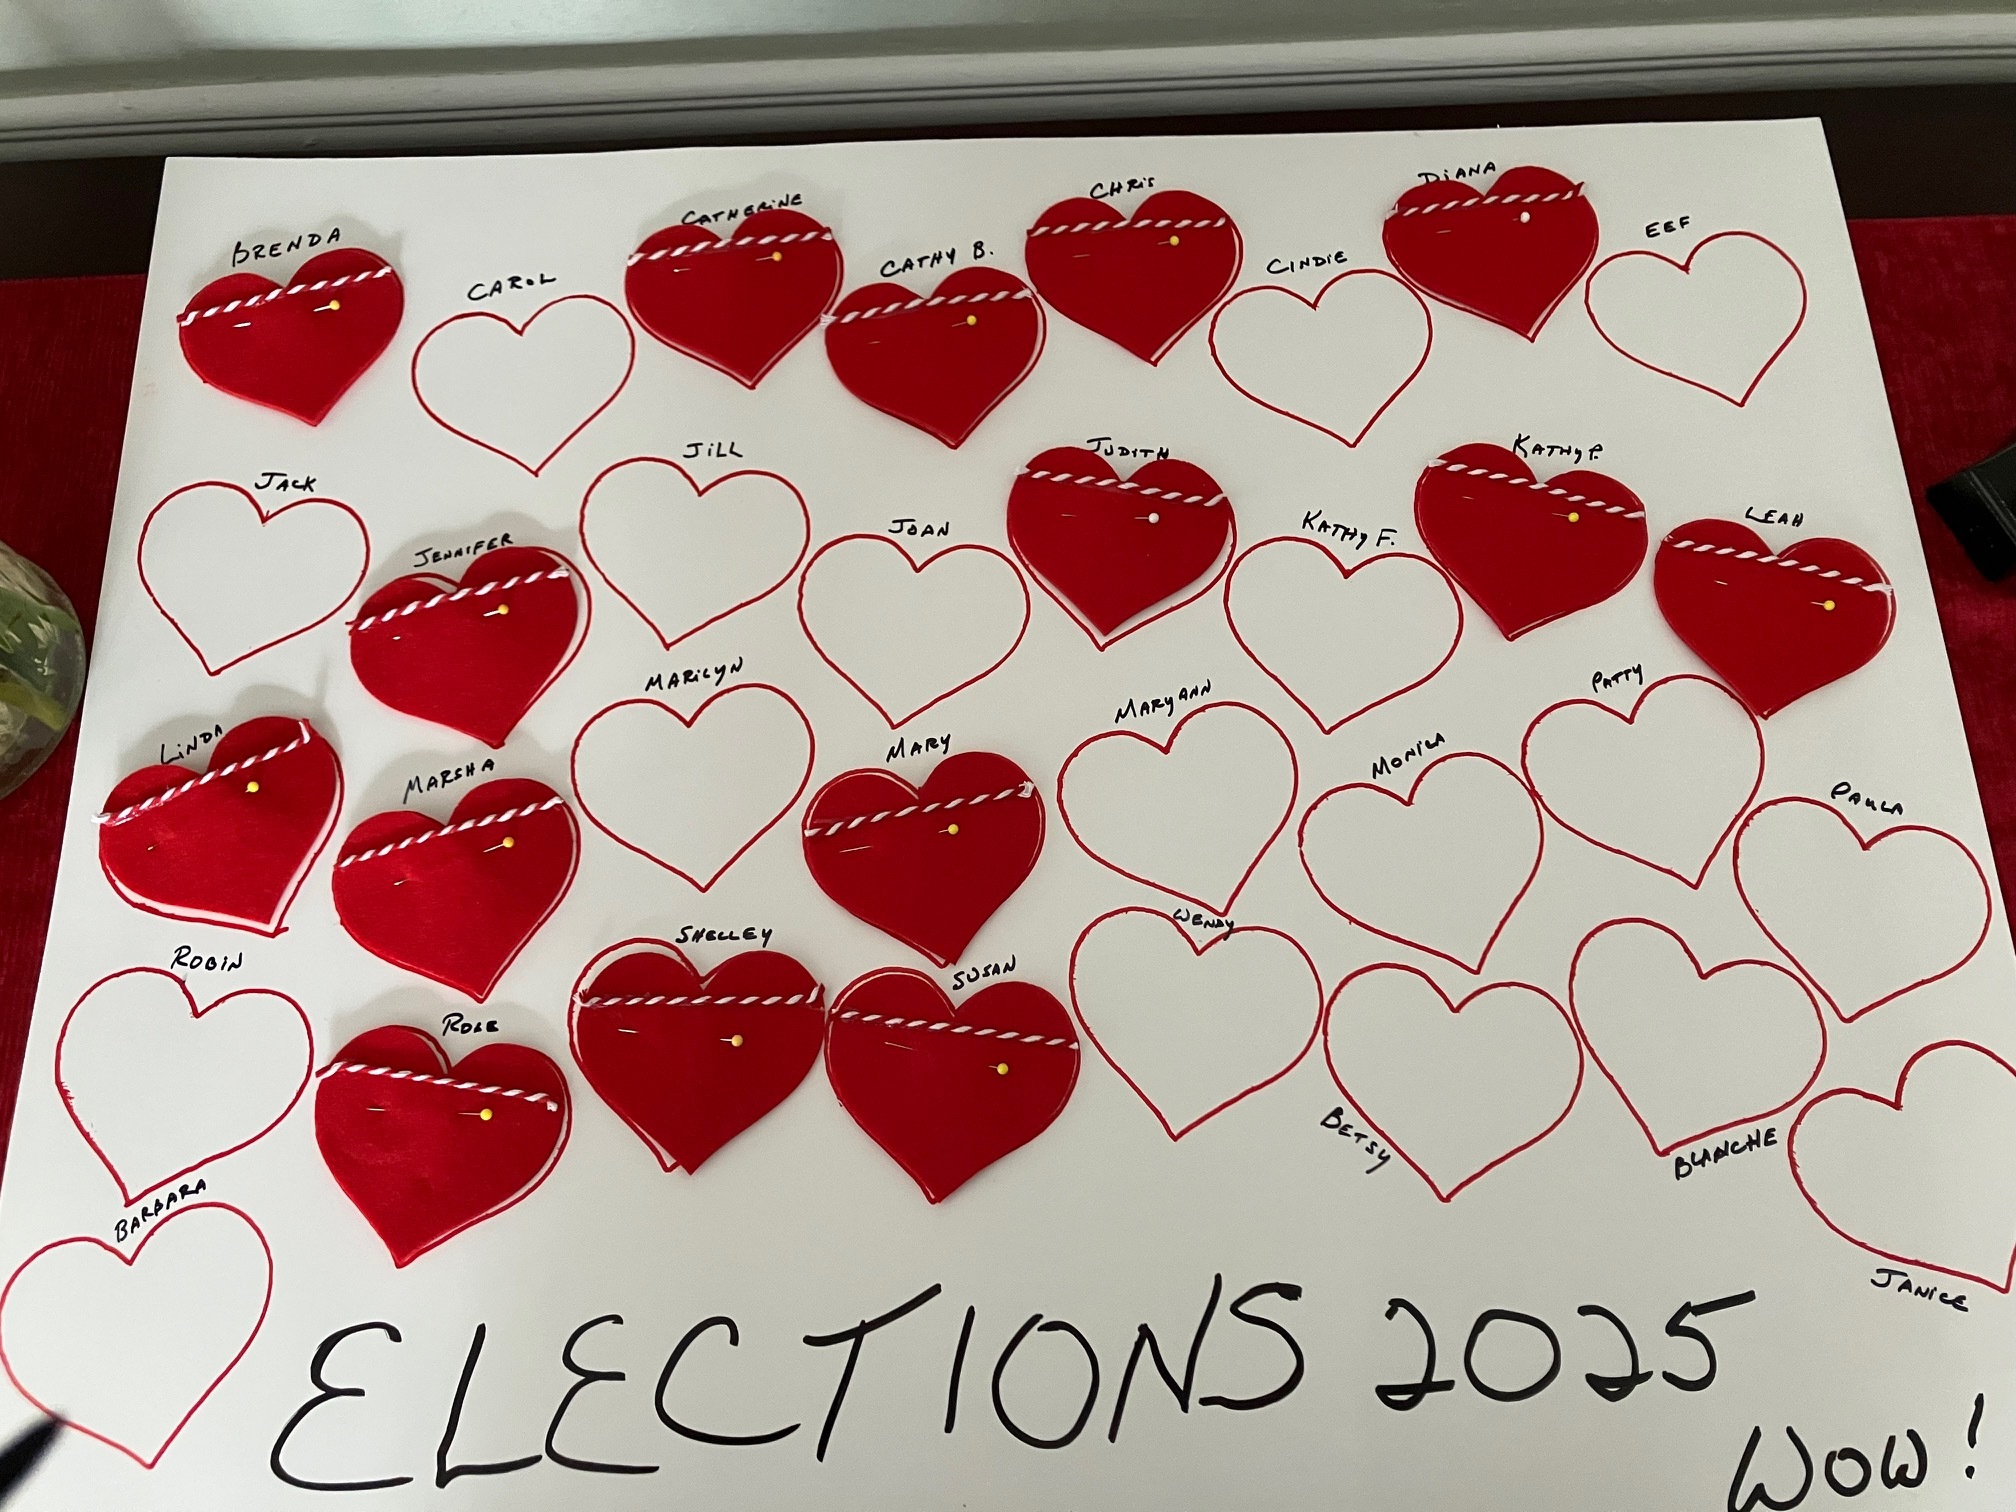 BRENDA
CAROL
CATHERINE
CATHY B.
CHRIS
CINDIE
DIANA
EEF
JACK
JENNIFER
JILL
JOAN
JUDITH
KATHY F.
KATHY P.
LEAH
LINDA
MARSHA
MARILYN
MARY
MARYANN
MONICA
PATTY
PAULA
ROBIN
ROSE
SHELLEY
SUSAN
WENDY
BETSY
BLANCHE
JANICE
BARBARA
ELECTIONS 2025
WOW!